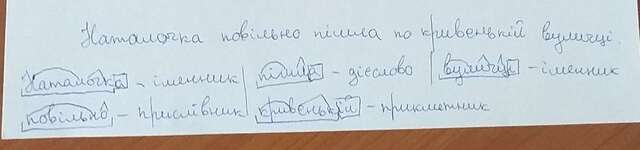 Наталочка повільно пішла по кривенькій вуличці.
Наталочка - іменник пішла - дієслово вуличці - іменник
повільно - прислівник кривенькій - прикметник